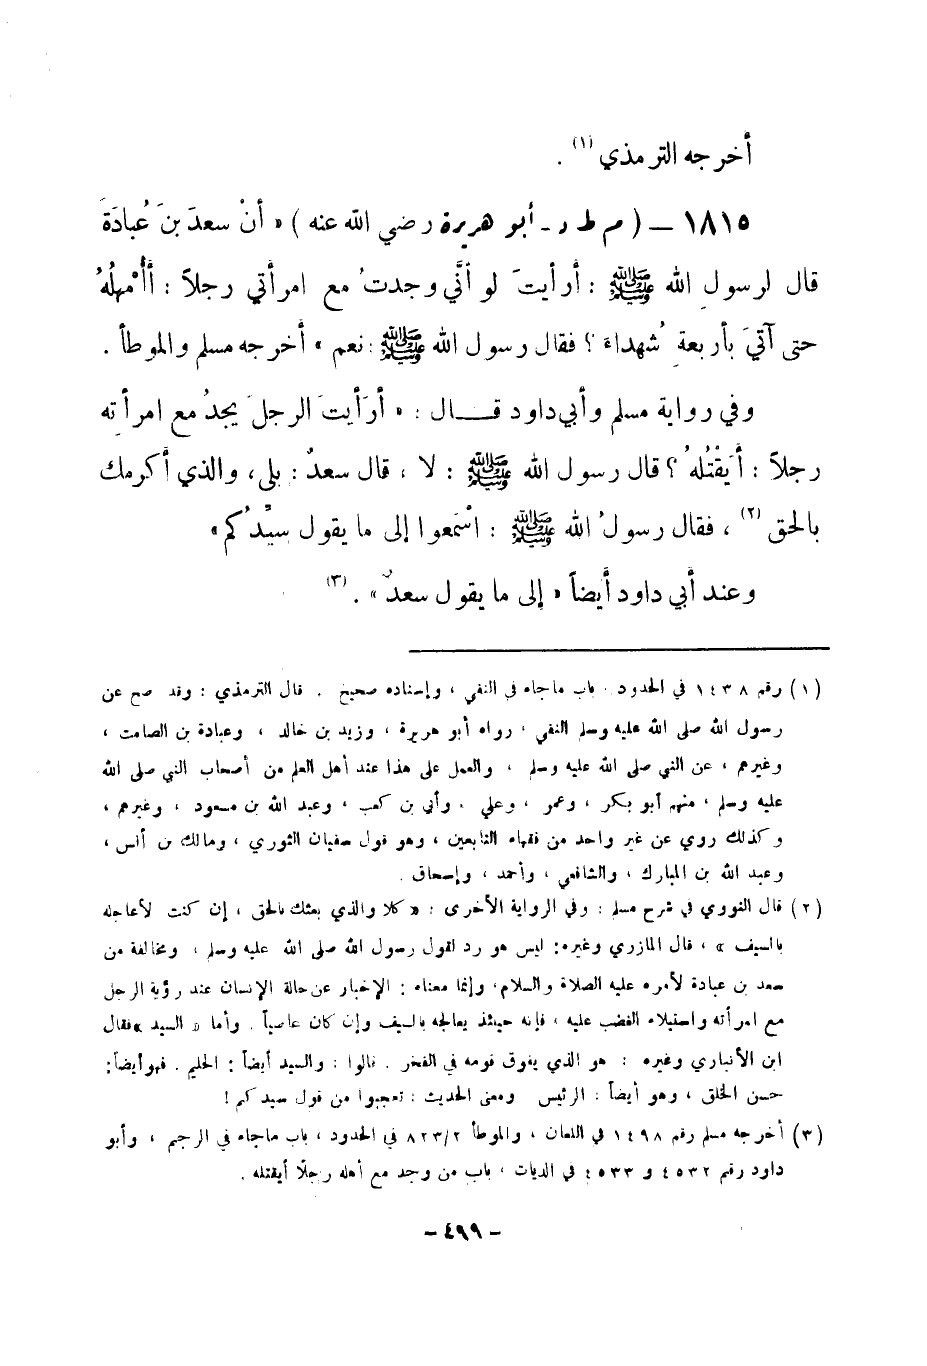 أخرجه الترمذي (١) .
١٨١٥ ــ ( م ط د ـ أبو هريرة رضي الله عنه ) « أنْ سعدَ بنَ عُبادَةَ
قال لرسولِ الله ﷺ : أرأيتَ لو أنَّي وجدتُ مع امرأتي رجلاً : أأُمْهِلُهُ
حتى آتيَ بأربعةِ شُهداءَ ؟ فقال رسول الله ﷺ : نعم » أخرجه مسلم والموطأ .
وفي رواية مسلم وأبي داود قـــال : « أرَأيتَ الرجلَ يجدُ مع امرأتِه
رجلاً : أيَقْتُلُهُ ؟ قال رسول الله ﷺ : لا ، قال سعدٌ : بلى ، والذي أكرمك
بالحق (٢) ، فقال رسولُ الله ﷺ : اسْمَعوا إلى ما يقول سيِّدُكم »
وعند أبي داود أيضاً « إلى ما يقول سعدٌ » . (٣)
(١) رقم ١٤٣٨ في الحدود . باب ماجاء في النفي ، وإسناده صحيح . قال الترمذي : وقد صح عن
رسول الله صلى الله عليه وسلم النفي ، رواه أبو هريرة ، وزيد بن خالد ، وعبادة بن الصامت ،
وغيرهم ، عن النبي صلى الله عليه وسلم ، والعمل على هذا عند أهل العلم من أصحاب النبي صلى الله
عليه وسلم ، منهم أبو بكر ، وعمر ، وعلي ، وأبي بن كعب ، وعبد الله بن مسعود ، وغيرهم ،
وكذلك روي عن غير واحد من فقهاء التابعين ، وهو قول سفيان الثوري ، ومالك بن أنس ،
وعبد الله بن المبارك ، والشافعي ، وأحمد ، وإسحاق .
(٢) قال النووي في شرح مسلم : وفي الرواية الأخرى : « كلا والذي بعثك بالحق ، إن كنت لأعاجله
بالسيف » ، قال المازري وغيره : ليس هو رد لقول رسول الله صلى الله عليه وسلم ، ومخالفة من
سعد بن عبادة لأمره عليه الصلاة والسلام ، وإنما معناه : الإخبار عن حالة الإنسان عند رؤية الرجل
مع امرأته واستيلاء الغضب عليه ، فإنه حينئذ يعالجه بالسيف وإن كان عاصياً . وأما « السيد » فقال
ابن الأنباري وغيره : هو الذي يفوق قومه في الفخر . قالوا : والسيد أيضاً : الحليم . فهو أيضاً :
حسن الخلق ، وهو أيضاً : الرئيس ومعنى الحديث : تعجبوا من قول سيدكم !
(٣) أخرجه مسلم رقم ١٤٩٨ في اللعان ، والموطأ ٨٢٣/٢ في الحدود ، باب ماجاء في الرجم ، وأبو
داود رقم ٤٥٣٢ و ٤٥٣٣ في الديات ، باب من وجد مع أهله رجلًا أيقتله .
- ٤٩٩ -